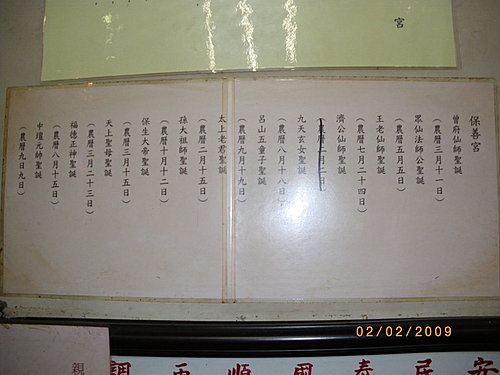 宮
保善宮
曾府仙師聖誕
(農曆三月十一日)
眾仙法師公聖誕
(農曆五月五日)
王老仙師聖誕
(農曆七月二十四日)
濟公仙師聖誕
(農曆二月二日)
九天玄女聖誕
(農曆八月十八日)
呂山五童子聖誕
(農曆九月十九日)
太上老君聖誕
(農曆二月十五日)
孫大祖師聖誕
(農曆十月十二日)
保生大帝聖誕
(農曆三月十五日)
天上聖母聖誕
(農曆三月二十三日)
福德正神聖誕
(農曆八月十五日)
中壇元帥聖誕
(農曆九月九日)
02/02/2009
安居泰
風順
調
親